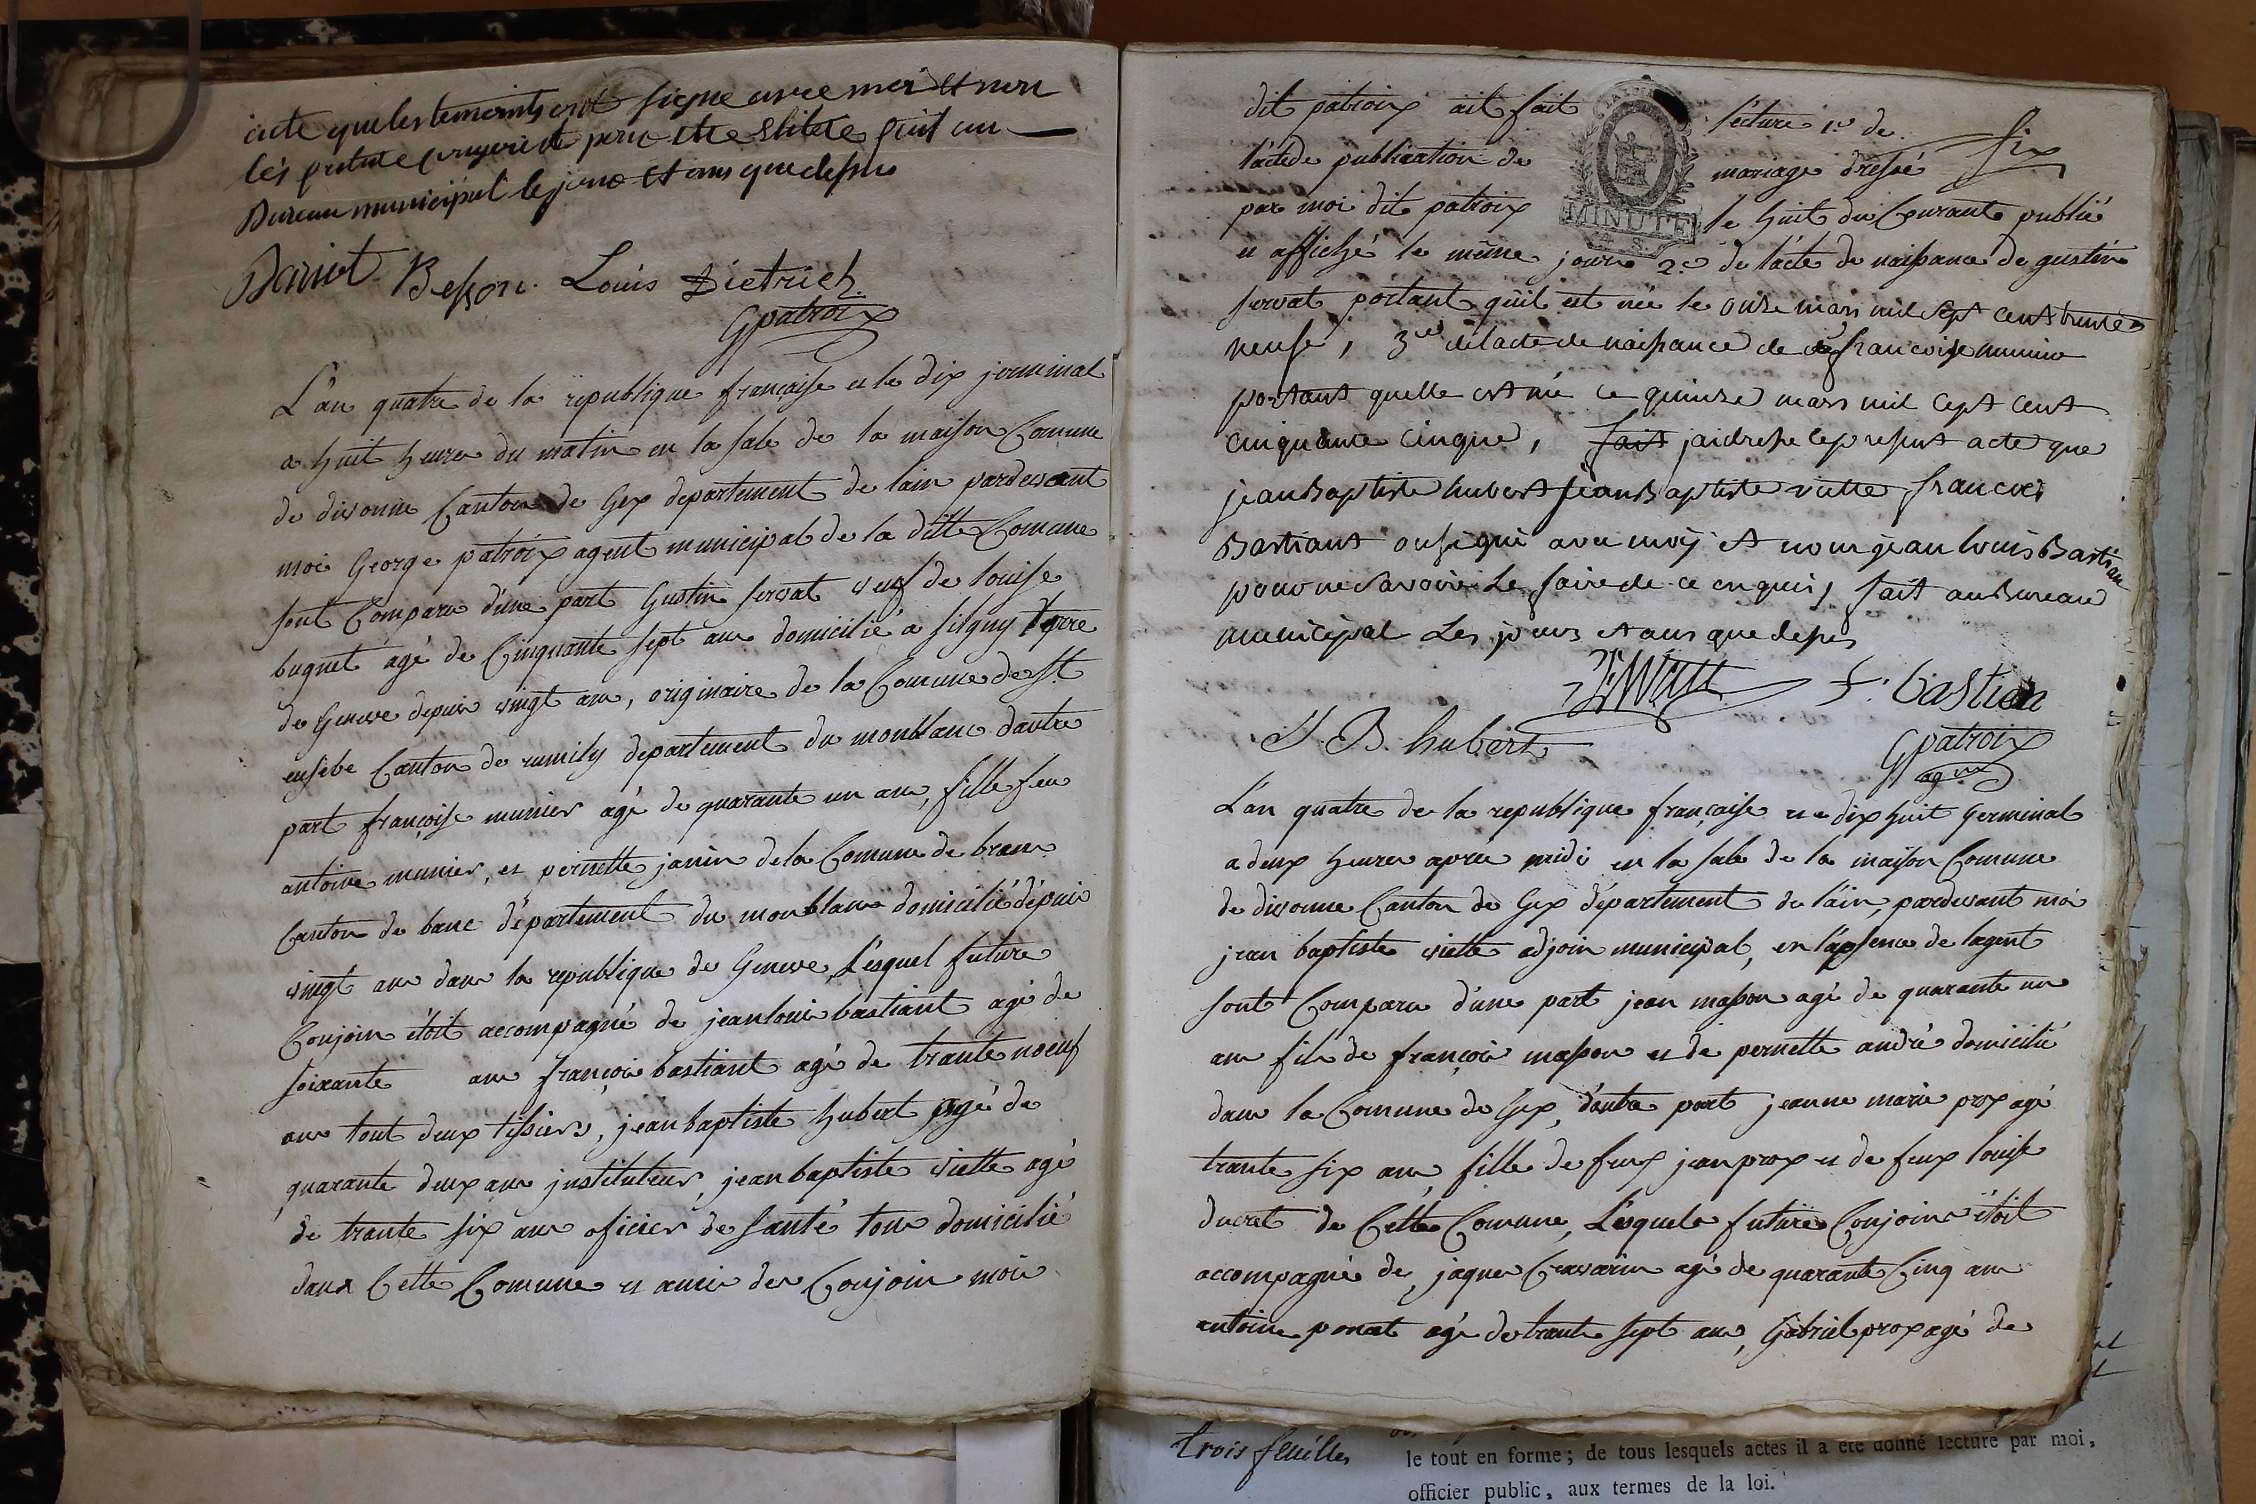 acte que les temoints ont signe avec moi et non
les preture pour ne
Bureau municipal le jour et ans que dessus
Bariot Besson. Louis Dietrich
G patroix
L'an quatre de la republique française et le dix jerminal
a huit heures du matin en la sale de la maison Comune
de divonne Canton de Gex departement de lain pardevant
moi George patroix agent municipal de la ditte Comune
sont Comparu d'une part Gustin servat veuf de louise
buquet agé de Cinquante sept ans domicilié a terre
de Geneve depuis vingt ans, originaire de la Comune de St
eusebe Canton de rumily departement du monblanc dautre
part françoise munier agé de quarante un ans, fille feu
antoine munier, et pernette janin de la Comune de
Canton de departement du monblanc domicilié dépuis
vingt ans dans la republique de Geneve, Lésquel future
Conjoin étoit accompagné de jean louis bastiant agé de
soixante ans françois bastiant agé de trante noeuf
ans tout deux tissiers, jean baptiste hubert agé de
quarante deux ans jnstituteur, jean baptiste viette agé
de trante six ans oficier de santé tous domicilié
dans Cette Comune et amis des Conjoin mois
dit patroix ait fait lécture 1.º de six
lácte de publication de mariage dréssé
par moi dit patroix le huit du Courante publié
MINUTE
et affiché le même jour 2.º de lácte de naissance de gustin
servat portant qu'il est née le onze mars mil sept cent trente
neufe, 3.º de lacte de naissance de francoise munier
portant quelle est né le quinze mars mil cept cent
cinquante cinque, fait jai dresse le present acte que
jean Baptiste hubert jean Baptiste viette francois
Bastiant on signé avec moij et non jean louis Bastian
pour ne savoir le faire de ce enquis, fait au Bureau
municipal Les jours et ans que desus
f. bastian
J. B. hubert
G patroix
agent
L'an quatre de la republique française et le dix huit Germinal
a deux heures après midi en la sale de la maison Comune
de divonne Canton de Gex département de láin, pardevant moi
jean baptiste viette adjoin municipal, en l'absence de lagent
sont Comparu d'une part jean masson agé de quarante un
ans fils de françois masson et de pernette andré domicilié
dans la Comune de Gex, d'autre part jeanne marie prox agé
trante six ans, fille de feux jean prox et de feux louise
ducret de Cette Comune, Lésquels future Conjoins étoit
accompagné de jaques agé de quarante Cinq ans
antoine ponat agé de trante sept ans, Gabriel prox agé de
trois feuilles
le tout en forme; de tous lesquels actes il a été donné lecture par moi,
officier public, aux termes de la loi.